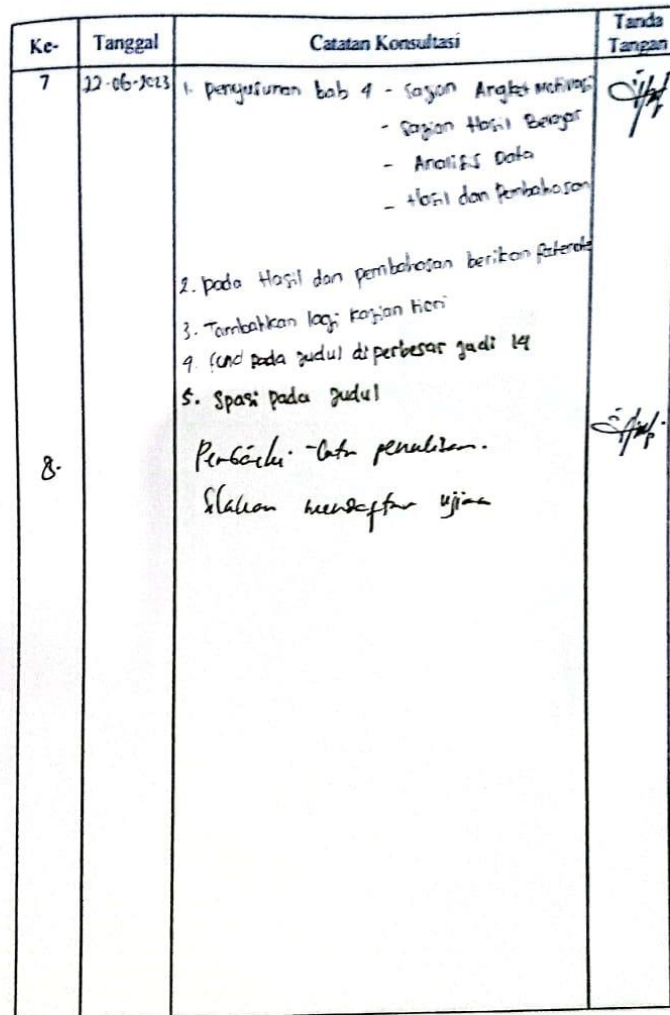 Ke- Tanggal Catatan Konsultasi Tanda Tangan
7 22-06-2023 1. penyusunan bab 4 - Sajian Angket Motivasi
- Sajian Hasil Belajar
- Analisis Data
- Hasil dan Pembahasan
2. pada Hasil dan pembahasan berikan
3. Tambahkan lagi kajian teori
4. pada judul diperbesar jadi 14
5. Spasi pada judul
8. penulisan.
Silahkan mendaftar ujian